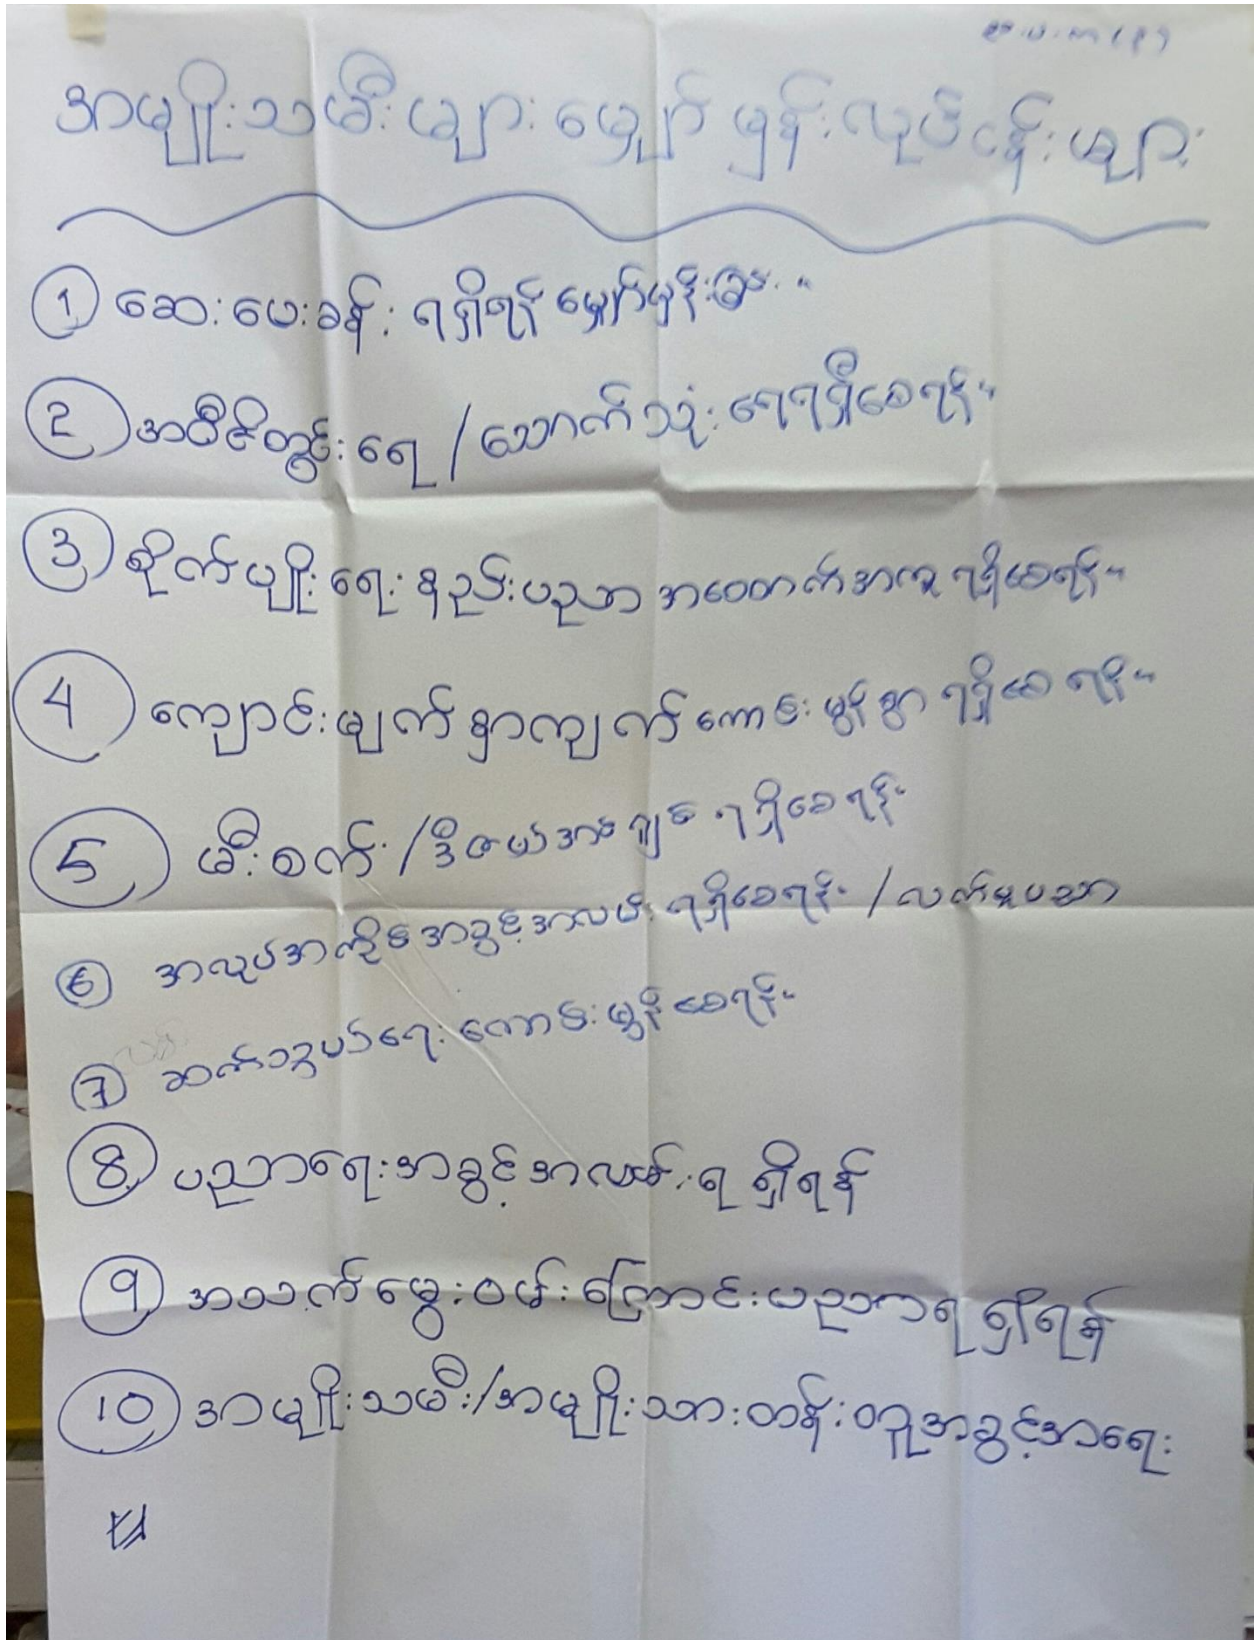 အမျိုးသမီးများ မျှော်မှန်းလုပ်ငန်းများ
① ဆေးပေးခန်း ရရှိရန် မျှော်မှန်းခြင်း။
② အဝီဇိတွင်းရေ / သောက်သုံးရေရရှိစေရန်။
③ စိုက်ပျိုးရေး နည်းပညာ အထောက်အကူ ရရှိစေရန်။
④ ကျောင်းမျက်နှာကျက် ကောင်းမွန်စွာ ရရှိစေရန်။
⑤ မီးစက် / ဒီဇယ်အင်ဂျင် ရရှိစေရန်။
⑥ အလုပ်အကိုင်အခွင့်အလမ်း ရရှိစေရန်။ / လက်မှုပညာ
⑦ ဆက်သွယ်ရေး ကောင်းမွန်စေရန်။
⑧ ပညာရေးအခွင့်အလမ်းရရှိရန်
⑨ အသက်မွေးဝမ်းကြောင်းပညာရရှိရန်
⑩ အမျိုးသမီး/အမျိုးသားတန်းတူအခွင့်အရေး